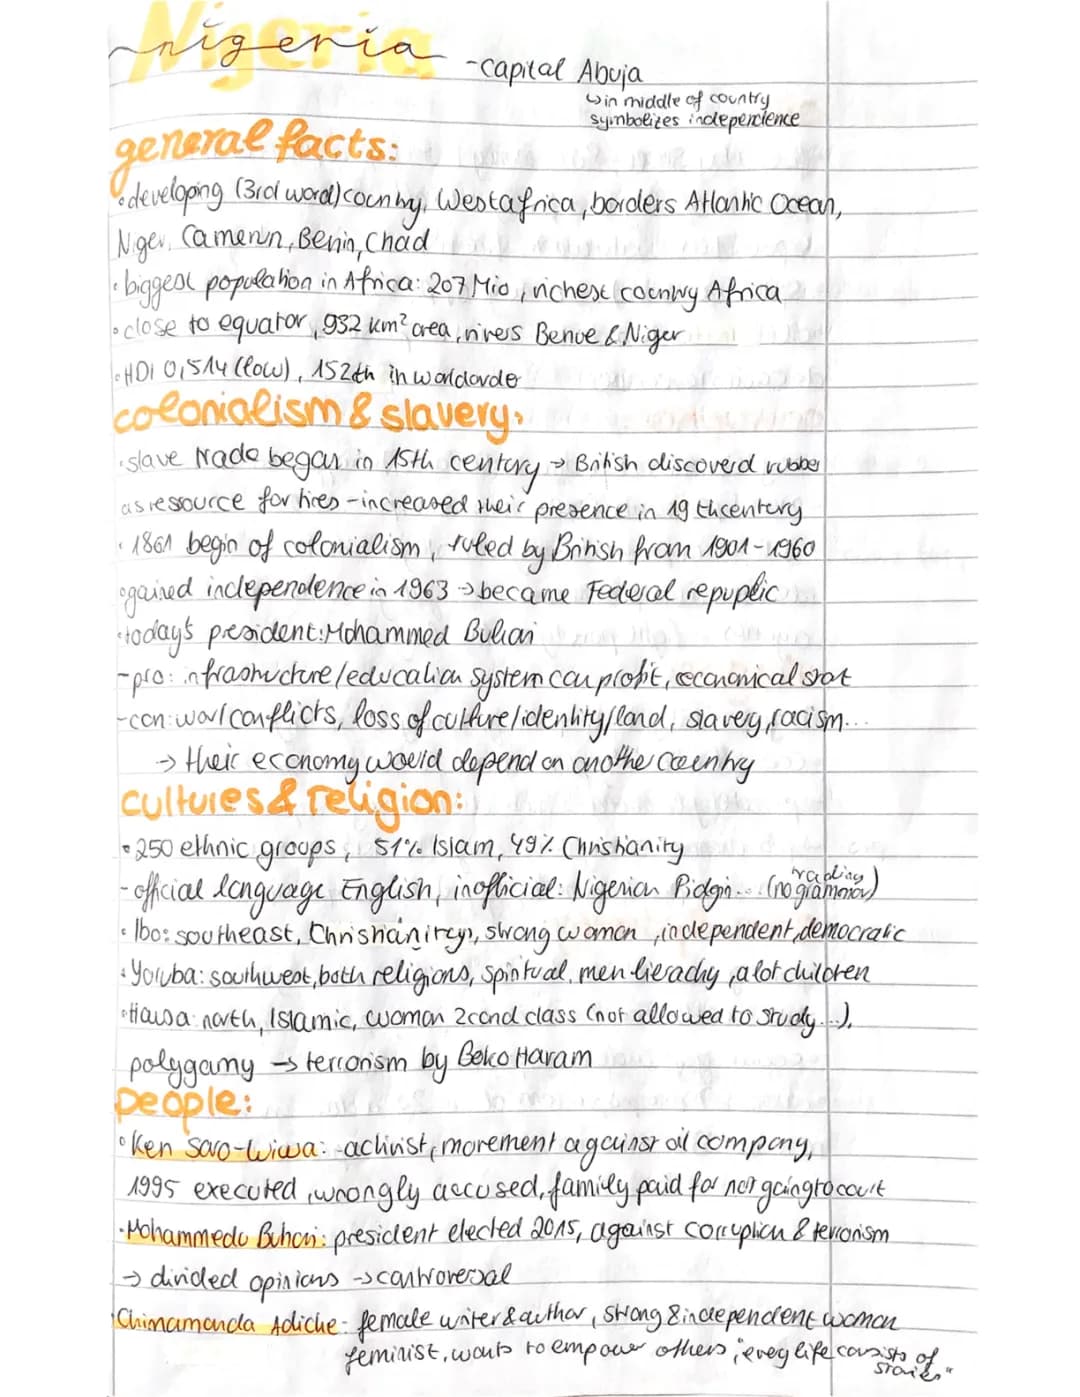 Nigeria
nigeria -capital Abuja
↳in middle of country
symbolizes independence
general facts:
•developing (3rd word) country, Westafrica, borders Atlantic Ocean,
Niger, Camerun, Benin, Chad
•biggest population in Africa: 207 Mio, richest country Africa
•close to equator, 932 km² area, rivers Benue & Niger
•HDI 0,514 (low), 152th in worldorder
colonialism & slavery:
•slave trade began in 15th century → British discoverd rubber
as resource for tires - increased their presence in 19 th century
•1861 begin of colonialism, ruled by British from 1901-1960
•gained independence in 1963 → became Federal repuplic
•today's president: Mohammed Buhari
-pro: infrastructure/education system can profit, economical
-con: war/conflicts, loss of culture/identity/land, slavery, racism...
→ their economy would depend on another country
cultures & religion:
•250 ethnic groups, 51% Islam, 49% Christianity
-official language English, inofficial: Nigerian Pidgin... (no grammar)
•Ibo: southeast, Christianity, strong women, independent, democratic
•Yoruba: southwest, both religions, spiritual, men hierachy, a lot children
•Hausa: north, Islamic, woman 2cond class (not allowed to study...),
polygamy → terrorism by Boko Haram
people:
•Ken Saro-Wiwa: -activist, movement against oil company,
1995 executed, wrongly accused, family paid for not going to court
•Mohammedu Buhari: president elected 2015, against corruption & terrorism
→ divided opinions → controversal
Chimamanda Adiche- female writer & author, strong & independent woman
feminist, wants to empower others, „every life consists of
stories"